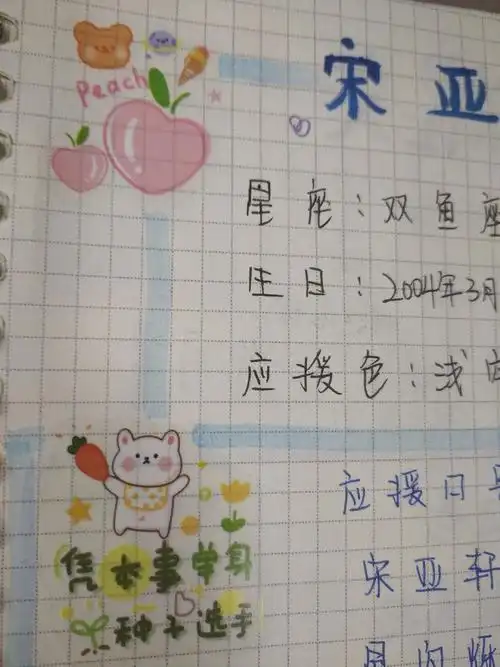 Peach
宋亚
星座：双鱼座
生日：2004年3月
应援色：浅
应援口号
宋亚轩
凭本事单身
种子选手